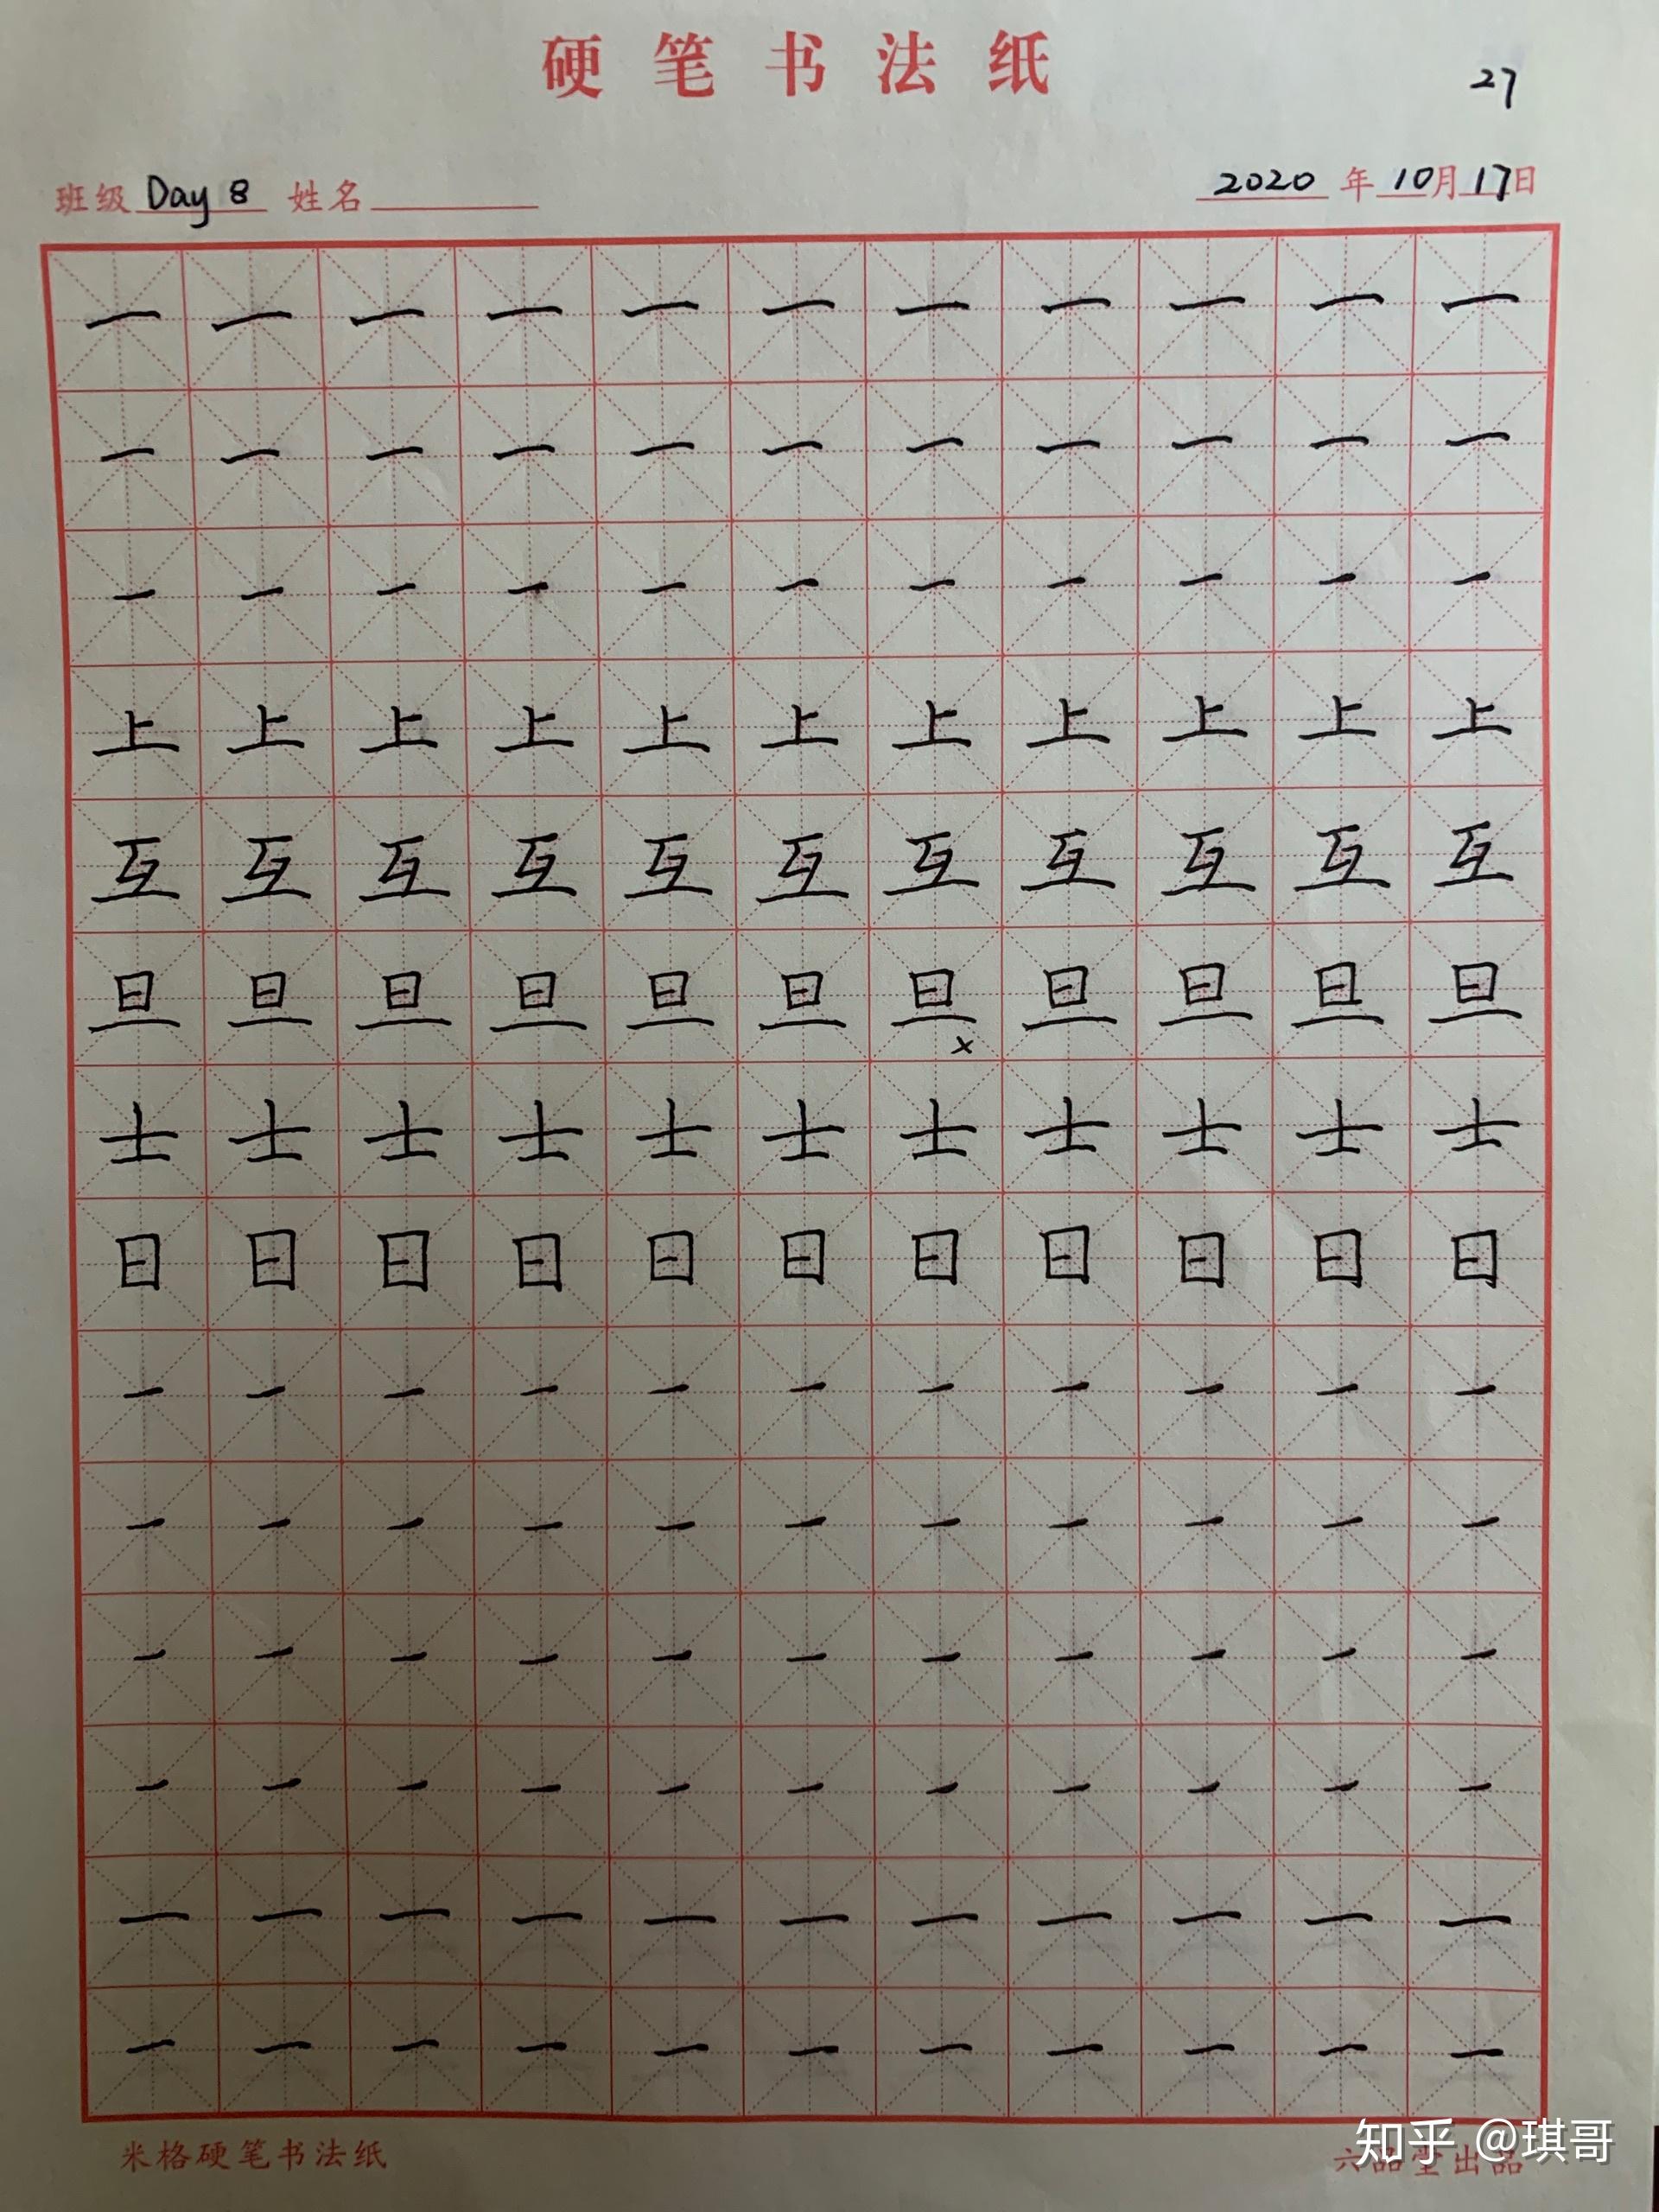 硬笔书法纸
27
班级 Day 8 姓名 2020 年 10 月 17 日
一 一 一 一 一 一 一 一 一 一 一
一 一 一 一 一 一 一 一 一 一 一
一 一 一 一 一 一 一 一 一 一 一
上 上 上 上 上 上 上 上 上 上 上
互 互 互 互 互 互 互 互 互 互 互
旦 旦 旦 旦 旦 旦 旦 旦 旦 旦 旦
×
士 士 士 士 士 士 士 士 士 士 士
日 日 日 日 日 日 日 日 日 日 日
一 一 一 一 一 一 一 一 一 一 一
一 一 一 一 一 一 一 一 一 一 一
一 一 一 一 一 一 一 一 一 一 一
一 一 一 一 一 一 一 一 一 一 一
一 一 一 一 一 一 一 一 一 一 一
一 一 一 一 一 一 一 一 一 一 一
米格硬笔书法纸 六品堂出品
知乎 @琪哥